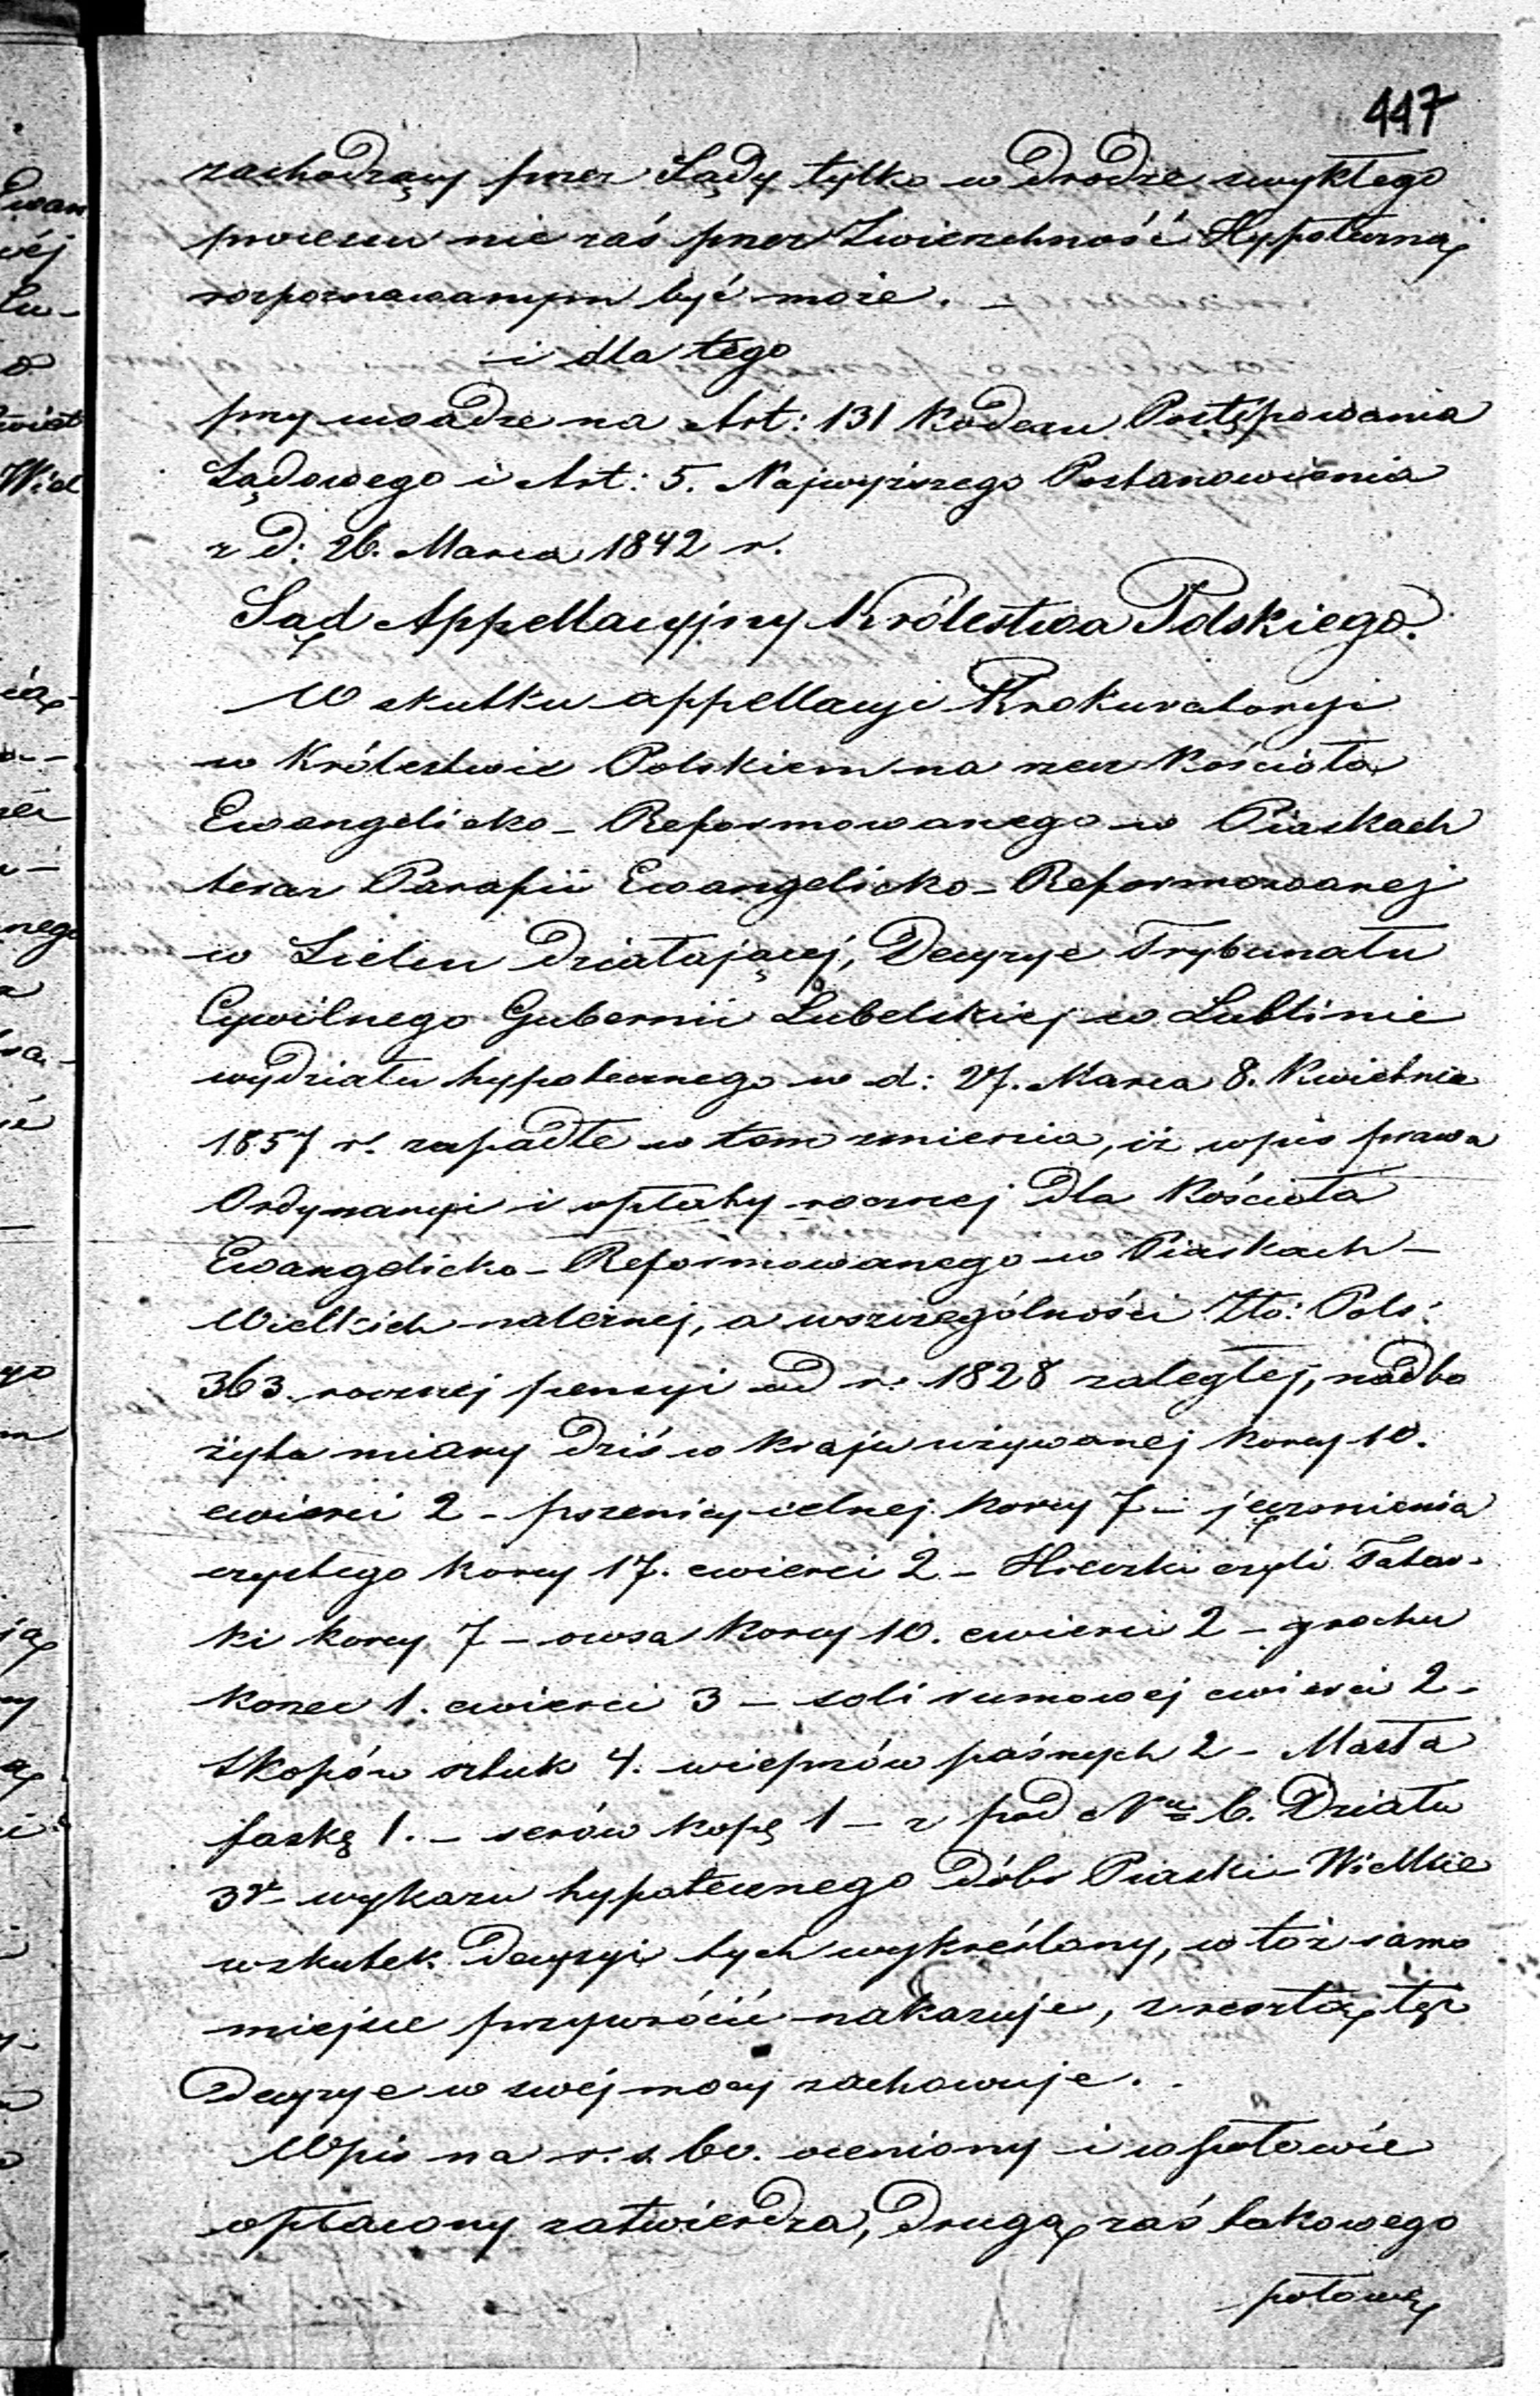 447
zachodzący przez Sądy tylko w drodze zwykłego
processu nie zaś przez Zwierzchność Hypoteczną
rozpoznawanym być może. –
i dla tego
przy wsadze na Art: 131 Kodexu Postępowania
Sądowego i Art: 5. Najwyższego Postanowienia
z d: 26. Marca 1842 r.
Sąd Appellacyjny Królestwa Polskiego.
W skutku appellacyi Prokuratoryi
w Królestwie Polskiem na rzecz Kościoła
Ewangelicko-Reformowanego w Piaskach
teraz Parafii Ewangelicko-Reformowanej
w Sielcu działającej, Decyzye Trybunału
Cywilnego Gubernii Lubelskiej w Lublinie
wydziału hypotecznego w d: 27. Marca 8. Kwietnia
1857 r. zapadłe w tem zmienia, iż wpis prawa
Ordynaryi i opłaty rocznej dla Kościoła
Ewangelicko-Reformowanego w Piaskach –
Wielkich należnej, a wszczególności Zło: Pols:
363 rocznej pensyi od r. 1828 zaległej, nadto
żyta miary dziś w kraju używanej korcy 10.
cwierci 2 – pszenicy celnej korcy 7 – jęczmienia
czystego korcy 17. cwierci 2 – Hreczki czyli Tatar-
ki korcy 7 – owsa korcy 10. cwierci 2 – grochu
korzec 1. cwierci 3 – soli rumowej cwierci 2 –
Skopów sztuk 4. wieprzów paśnych 2 – Masła
faskę 1. – serów kopę 1 – z pod Nru 6. Działu
3o wykazu hypotecznego Dóbr Piaski-Wielkie
wskutek decyzyi tych wykreślony, w toż samo
miejsce przywrócić nakazuje, z resztą też
Decyzye w swéj mocy zachowuje.
Wpis na r. s. 60. oceniony i w połowie
opłacony zatwierdza, drugą zaś takowego
połowę